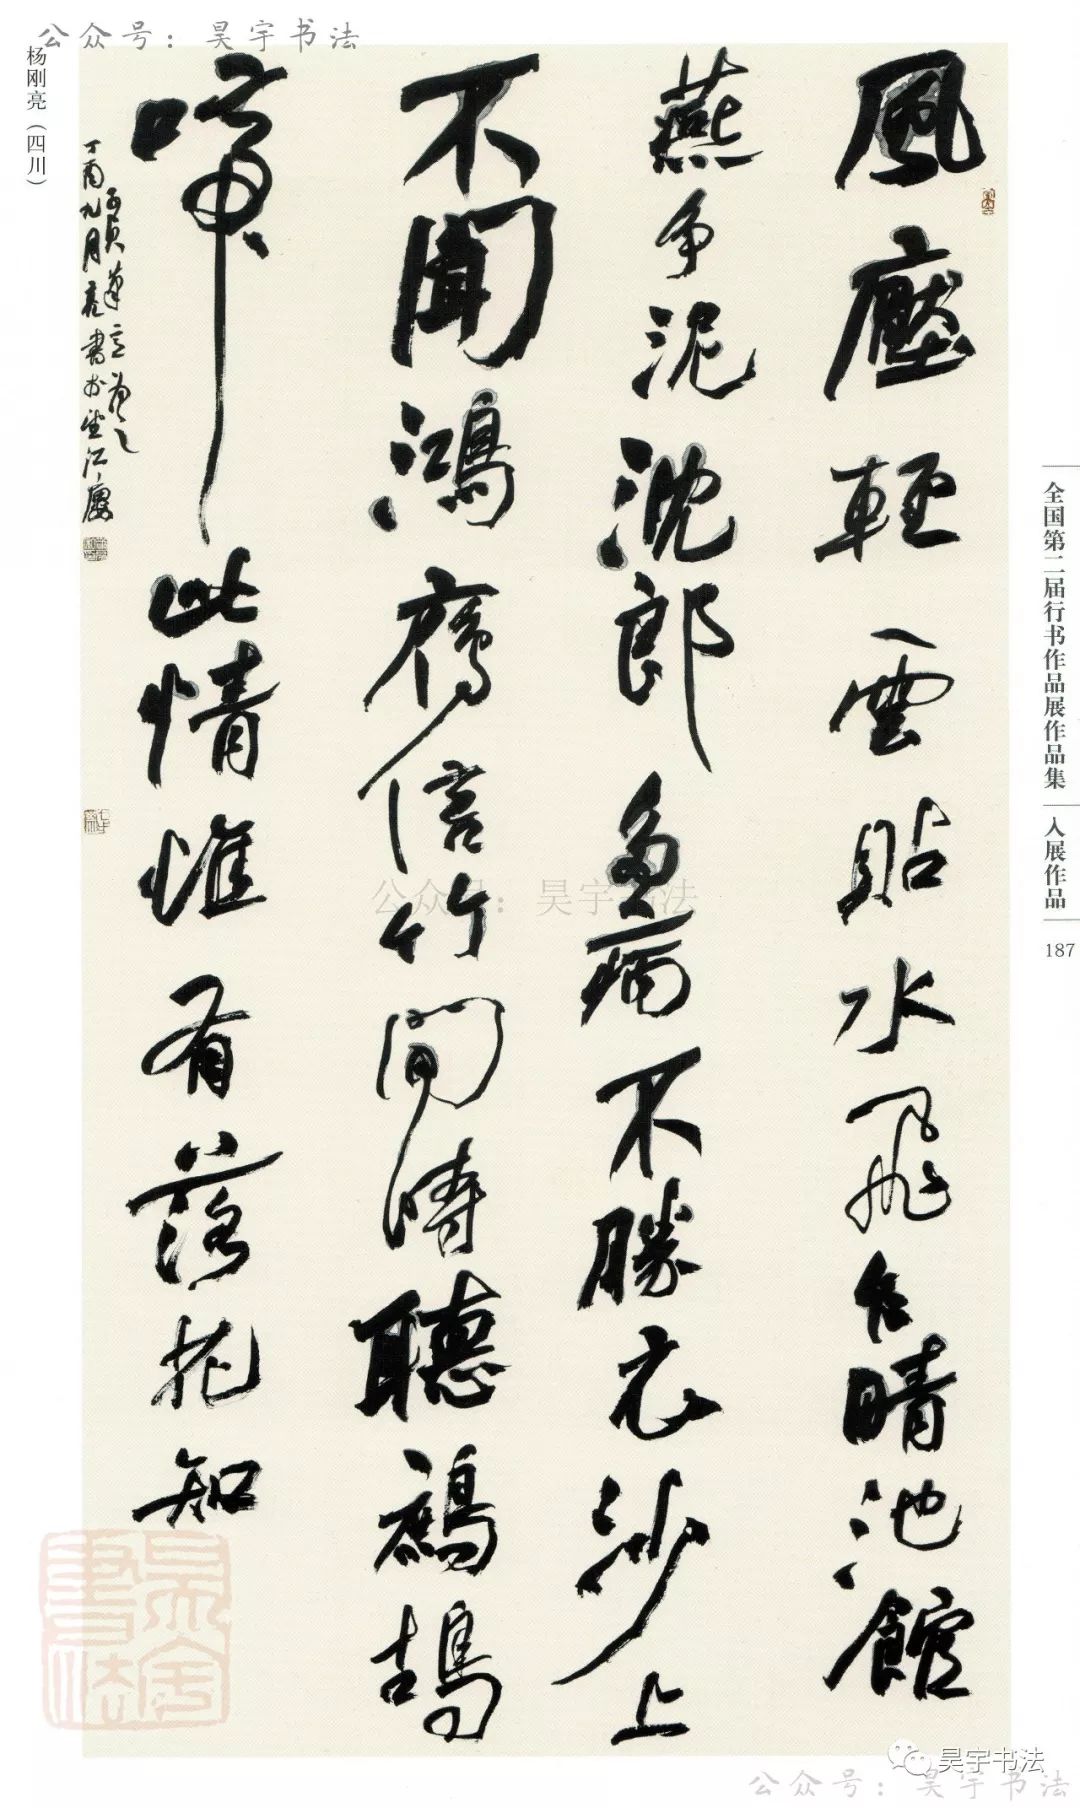 公众号：昊宇书法
杨刚亮（四川）
風壓輕雲貼水飛乍晴池館
燕争泥沈郎多病不勝衣沙上
不聞鴻鴈信竹間時聽鷓鴣
啼此情惟有落花知
丁酉九月亮書於望江
全国第二届行书作品展作品集
入展作品
187
公众号：昊宇书法
昊宇書法
昊宇书法
公众号：昊宇书法